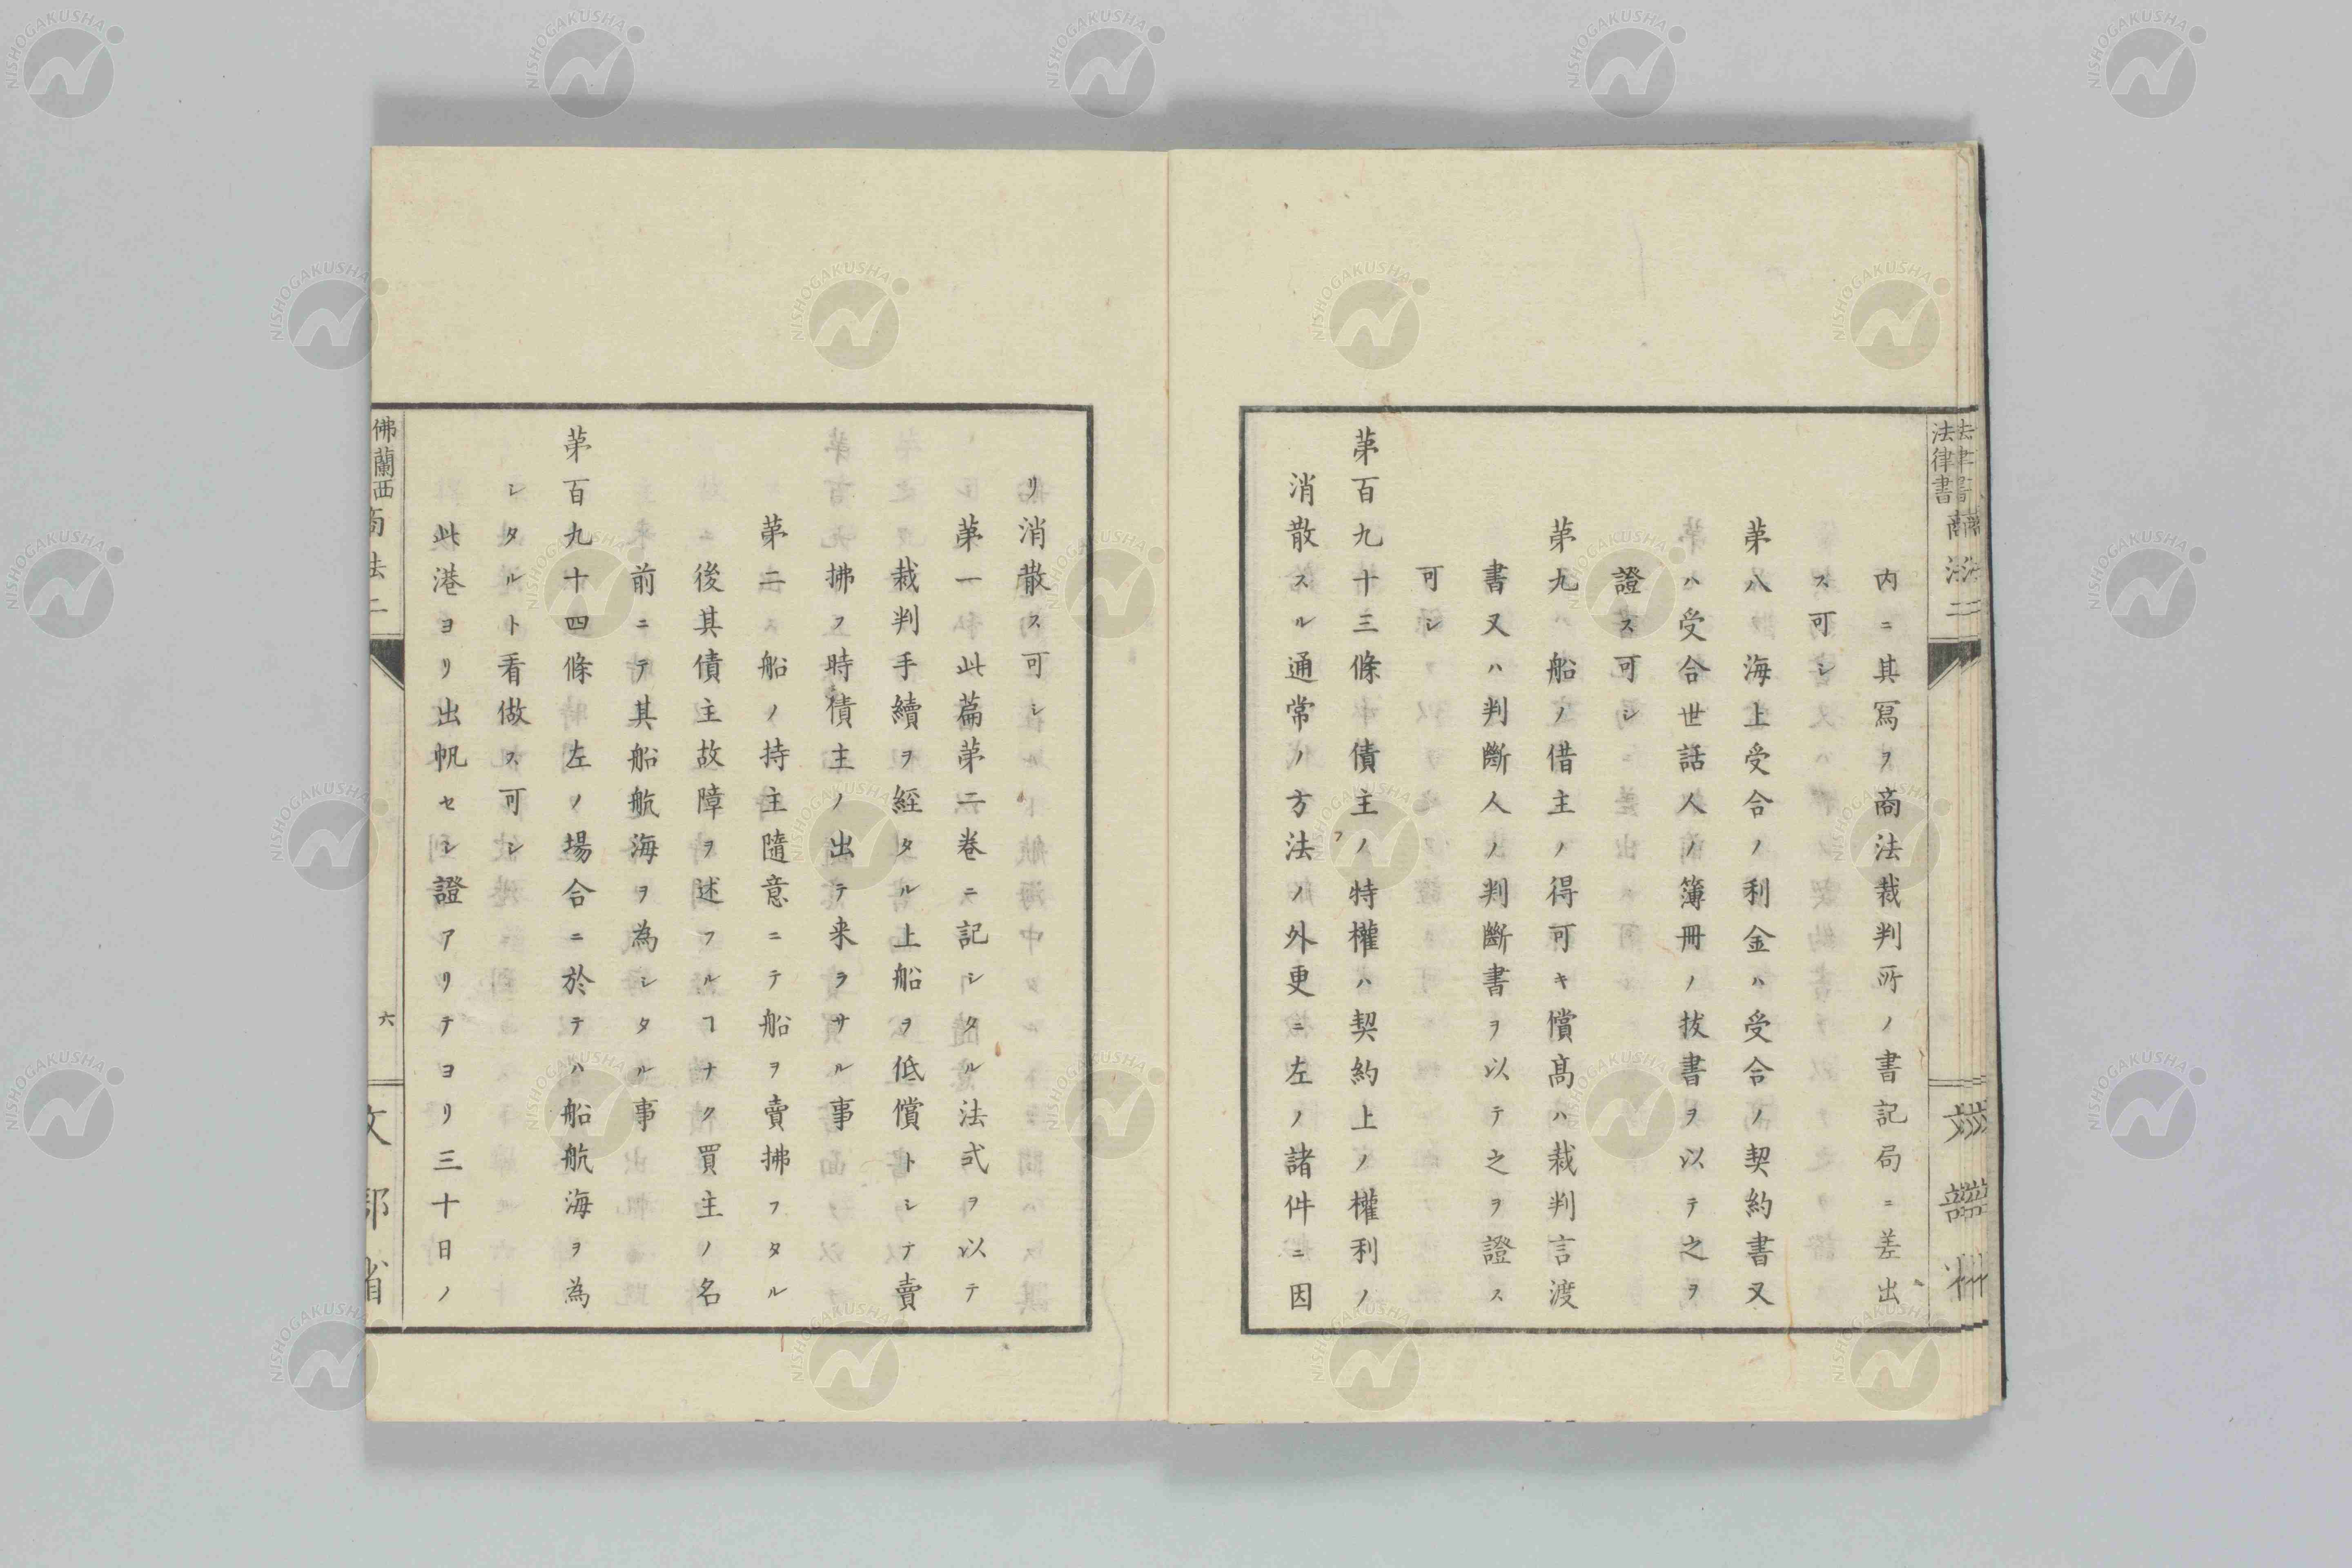 法律書 商法二
内ニ其寫ヲ商法裁判所ノ書記局ニ差出
ス可シ
第八海上受合ノ利金ハ受合ノ契約書又
ハ受合世話人ノ簿冊ノ抜書ヲ以テ之ヲ
證ス可シ
第九船ノ借主ノ得可キ償髙ハ裁判言渡
書又ハ判斷人ノ判斷書ヲ以テ之ヲ證ス
可シ
第百九十三條債主ノ特權ハ契約上ノ權利ノ
消散スル通常ノ方法ノ外更ニ左ノ諸件ニ因
リ消散ス可シ
第一此篇第二巻ニ記シタル法式ヲ以テ
裁判手續ヲ経タル上船ヲ低償トシテ賣
拂フ時債主ノ出テ来ラサル事
第二船ノ持主隨意ニテ船ヲ賣拂フタル
後其債主故障ヲ述フルヿナク買主ノ名
前ニテ其船航海ヲ為シタル事
第百九十四條左ノ場合ニ於テハ船航海ヲ為
シタルト看做ス可シ
此港ヨリ出帆セシ證アリテヨリ三十日ノ
佛蘭西商法二
六
文部省
NISHOGAKUSHA